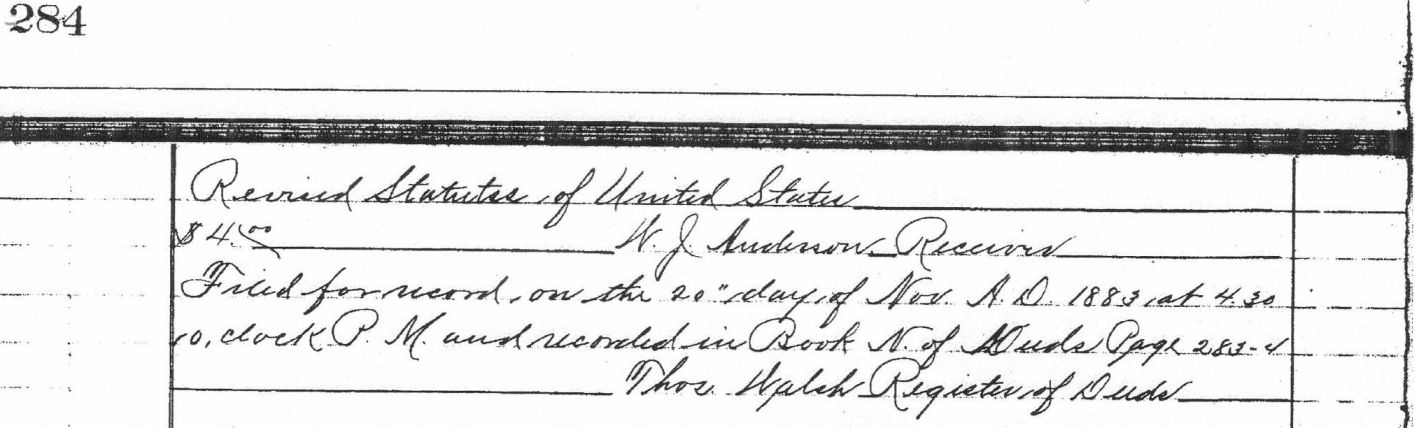 284
Revised Statutes of United States
$4.00 W. J. Anderson Receiver
Filed for record, on the 20" day of Nov A. D. 1883, at 4.30
o, clock P. M. and recorded in Book N. of Deeds Page 283-4
Thos. Walsh Register of Deeds